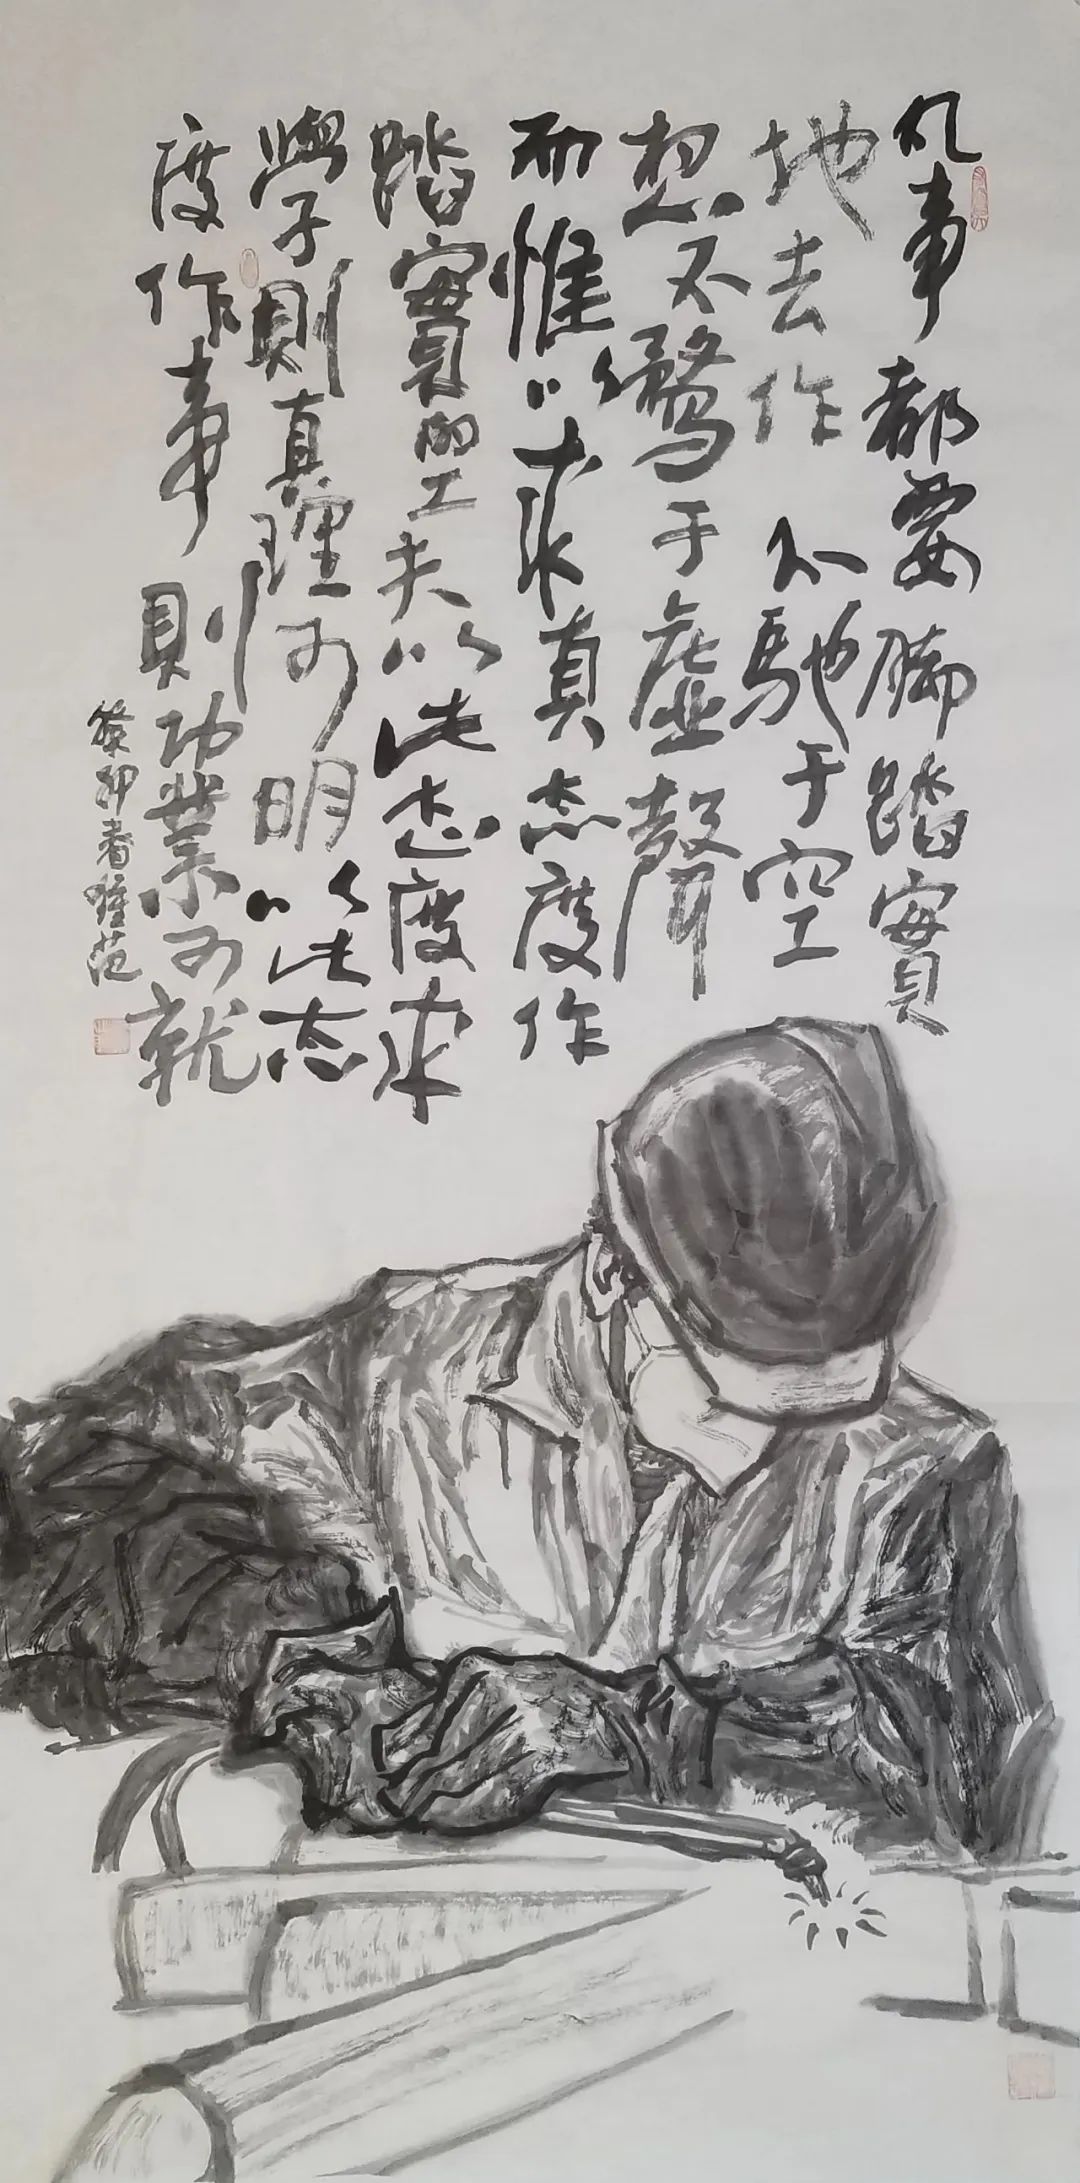 凡事都要脚踏實
地去作不馳于空
想不鶩于虚聲
而惟以求真态度作
踏實的工夫以此态度求
學則真理可明以此态
度作事則功業可就
癸卯春